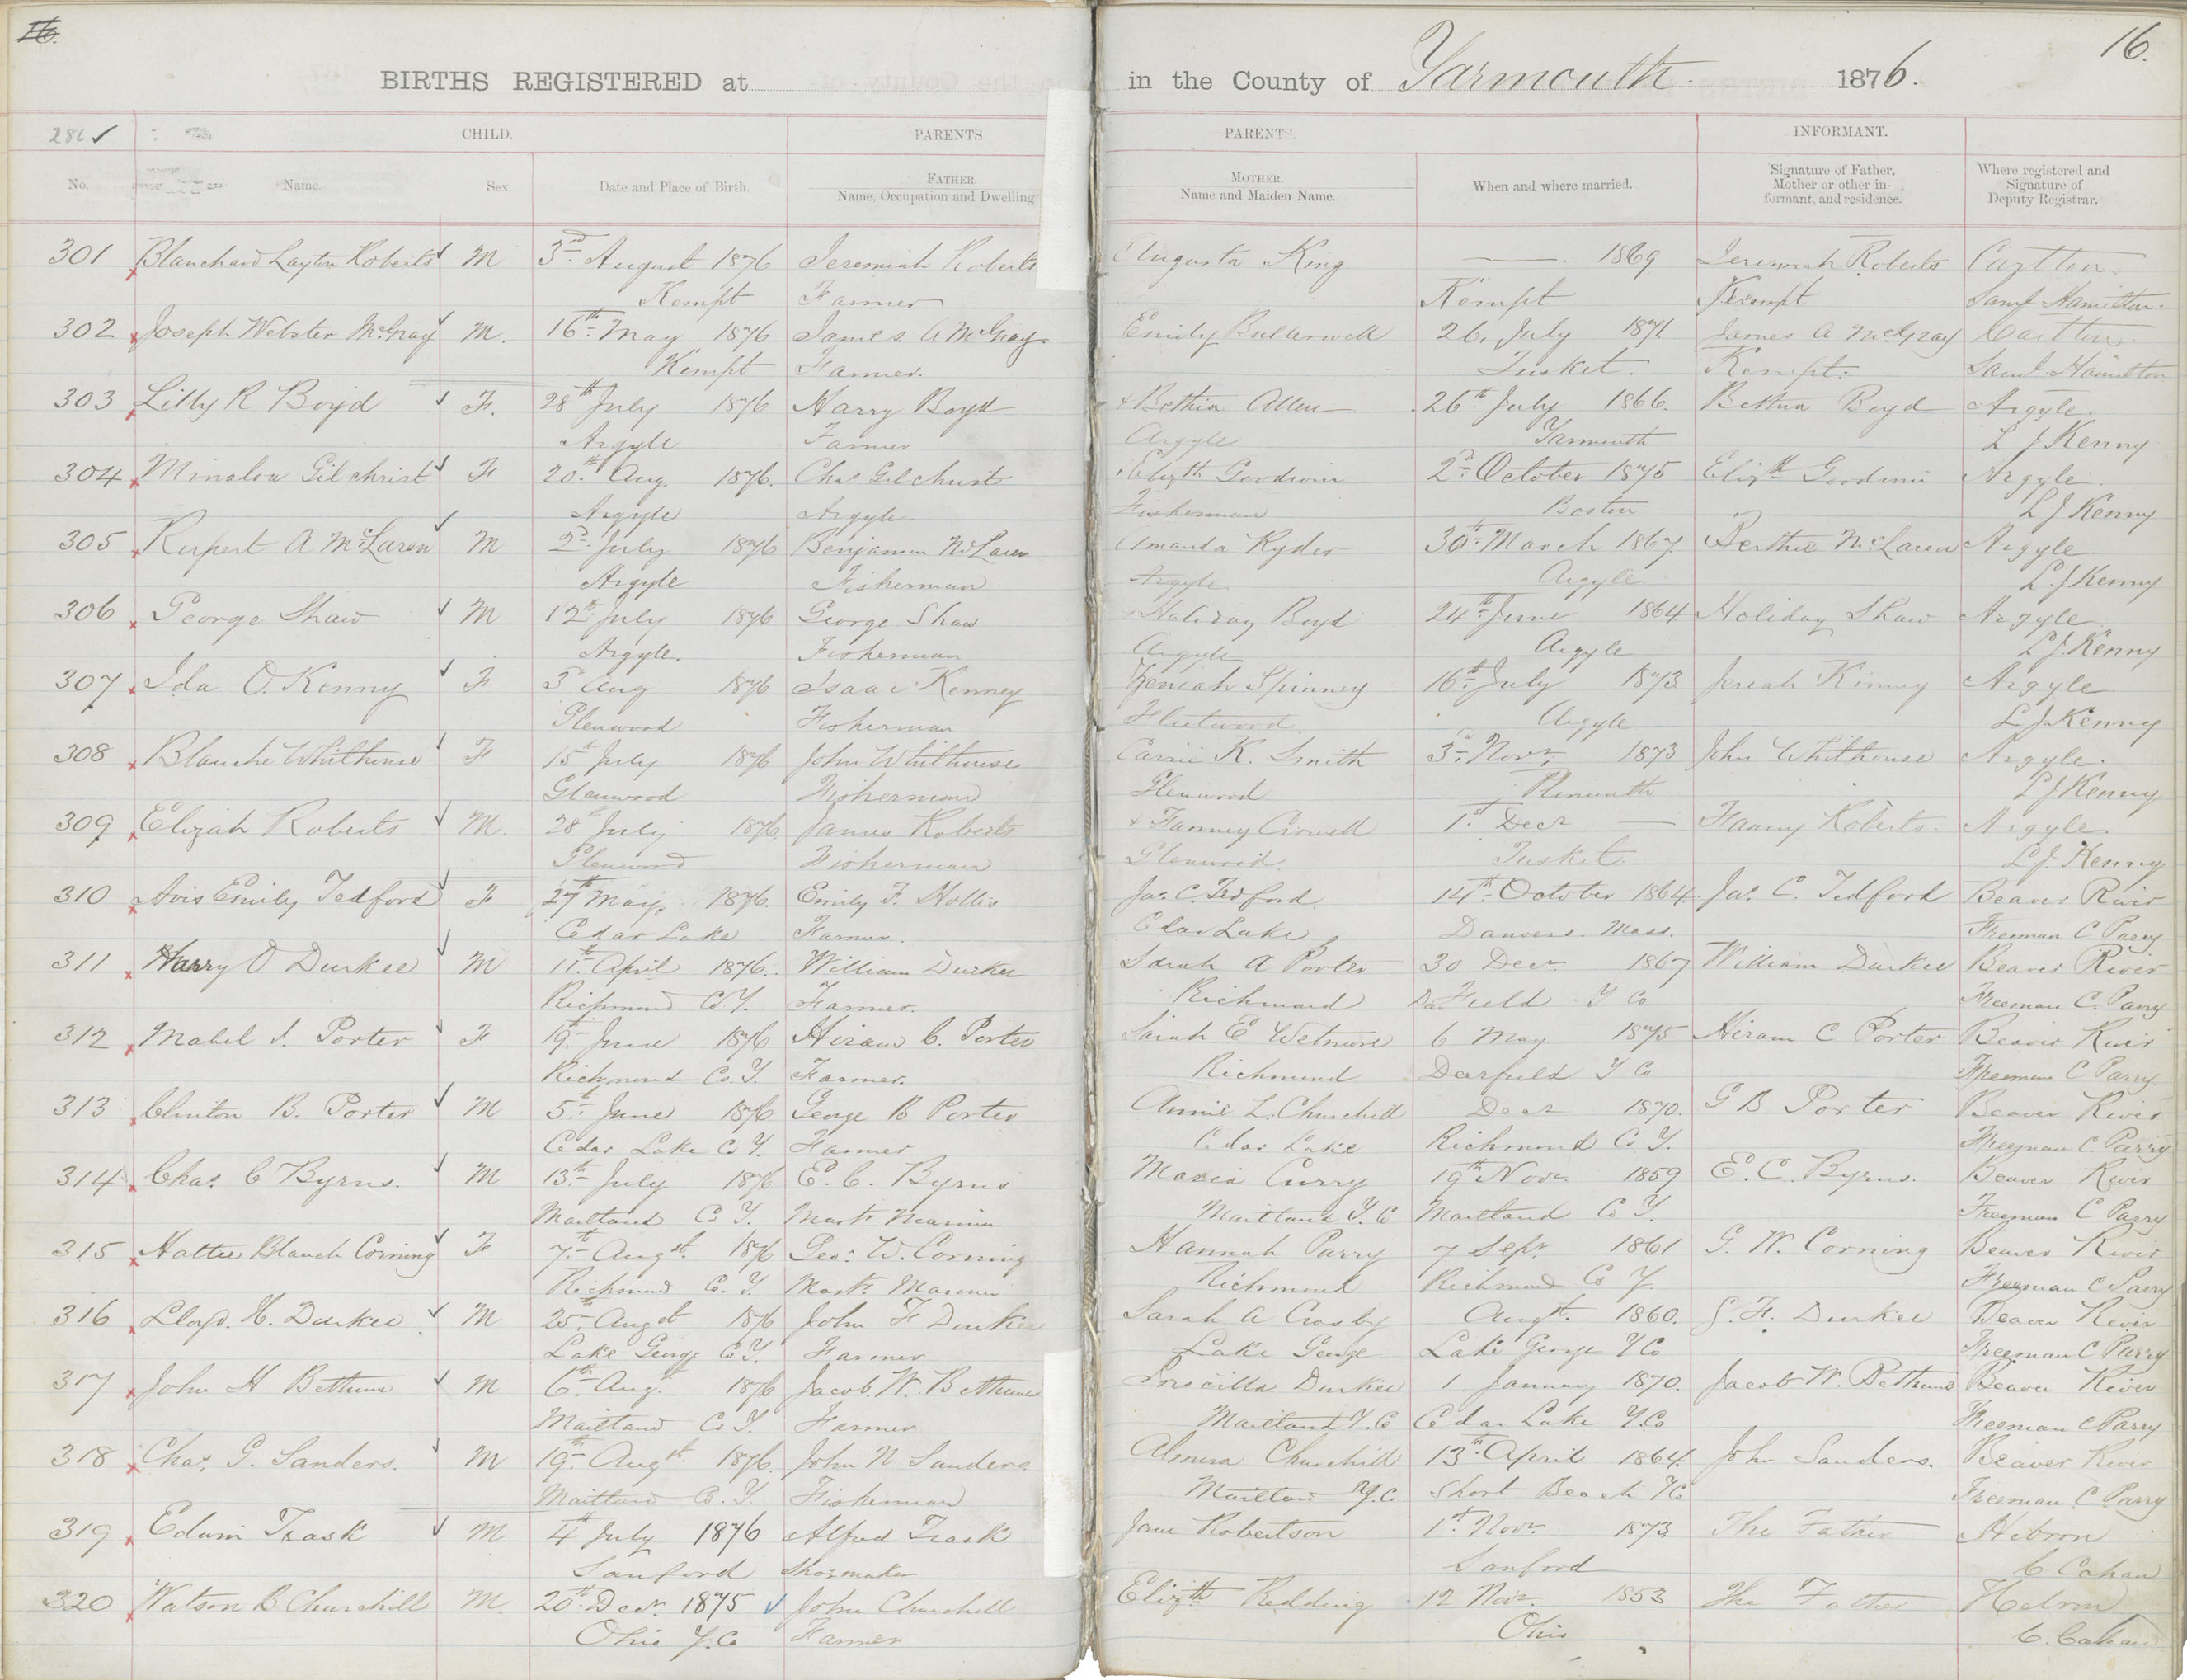 16.
16.
BIRTHS REGISTERED at in the County of Yarmouth. 1876.
286 ✓ CHILD. PARENTS. PARENTS. INFORMANT.
No. Name. Sex. Date and Place of Birth. FATHER. Name, Occupation and Dwelling MOTHER. Name and Maiden Name. When and where married. Signature of Father, Mother or other informant, and residence. Where registered and Signature of Deputy Registrar.
301 Blanchard Layton Roberts M 3rd August 1876 Jeremiah Roberts Augusta King 1869 Jeremiah Roberts Carlton
Kempt Farmer Kempt Kempt Saml Hamilton
302 Joseph Webster McGray M. 16th May 1876 James A McGray. Emily Butterwell 26, July 1871. James A McGray Carlton
Kempt Farmer. Tusket. Kempt. Saml Hamilton
303 Lilly R Boyd F. 28th July 1876 Harry Boyd Bethia Allen 26th July 1866. Bethia Boyd Argyle.
Argyle Farmer Argyle Yarmouth L J Kenny
304 Gilchrist F 20th Aug. 1876. Chas Gilchrist Elizth Goodwin 2d October 1875 Elizth Goodwin Argyle.
Argyle Argyle Fisherman Boston L J Kenny
305 Rupert A McLaren M 2d July 1876 Benjamin McLaren Amanda Ryder 30th March 1867 McLaren Argyle
Argyle Fisherman Argyle Argyle L. J Kenny
306 George Shaw M 12th July 1876 George Shaw Holiday Boyd 24th June 1864 Holiday Shaw Argyle
Argyle. Fisherman Argyle Argyle L J. Kenny
307 Ida O. Kenny F 3d Aug 1876 Isaac Kenney Spinney 16th July 1873 Kinney Argyle
Glenwood Fisherman Argyle L. J. Kenny
308 Blanche Whithouse F 15th July 1876 John Whithouse Carrie K. Smith 3d Novr. 1873 John Whithouse Argyle.
Glenwood Fisherman Glenwood L J Kenny
309 Elizah Roberts M. 28th July 1876. James Roberts Fanney Crowell 1st Decr Fanny Roberts. Argyle.
Glenwood Fisherman Glenwood. Tusket. L. J. Kenny
310 Avis Emily Tedford F 27th May 1876. Emily F. Hollis Jas. C. Tedford. 14th October 1864. Jas. C. Tedford Beaver River
Cedar Lake Farmer. Lake Danvers. Mass. Freeman C Parry
311 Harry O Durkee M 11th April 1876. William Durkee Sarah A Porter 30 Decr 1867 William Durkee Beaver River
Richmond Co. Y. Farmer. Richmond Deerfield Y Co Freeman C. Parry
312 Mabel I. Porter F 19th June 1876 Hiram C. Porter Sarah E Wetmore 6 May 1875 Hiram C Porter Beaver River
Richmond Co. Y. Farmer. Richmond Deerfield Y Co Freeman C Parry.
313 Clinton B. Porter M 5th June 1876 George B Porter Annie L. Churchill Decr 1870. G B Porter Beaver River
Cedar Lake Co Y. Farmer Cedar Lake Richmond Co Y. Freeman C. Parry
314 Chas. C Byrns. M 13th July 1876 E. C. Byrns Maria Curry 19th Novr 1859 E. C. Byrns. Beaver River
Maitland Co Y. Mastr Mariner Maitland Y. Co Maitland Co Y. Freeman C Parry
315 Hattie Blanch Corning F 7th Augst. 1876 Geo: W. Corning Hannah Parry 7 Sepr. 1861 G. W. Corning Beaver River
Richmond Co. Y. Mastr. Mariner Richmond Richmond Co Y. Freeman C Parry
316 Lloyd. H. Durkee M 25th Augst 1876 John F Durkee Sarah A Crosby Augst. 1860. J. F. Durkee Beaver River
Lake George Co Y. Farmer Lake George Lake George Y Co Freeman C Parry
317 John H Bethune M 6th Aug. 1876 Jacob. W. Bethune Priscilla Durkee 1 January 1870. Jacob W. Bethune Beaver River
Maitland Co Y. Farmer Maitland Y. Co Cedar Lake Y. Co Freeman C Parry
318 Chas. G. Sanders. M 19th Augst 1876. John N Sanders Almira Churchill 13th April 1864. John Sanders. Beaver River
Maitland Co. Y. Fisherman Maitland Y. Co Short Beach Y Co Freeman C. Parry
319 Edwin Trask M 4th July 1876 Alfred Trask Jane Robertson 1st Novr. 1873 The Father Hebron
Sanford Shoemaker Sanford C Cahan
320 Watson B Churchill M. 20th Decr. 1875 ✓ John Churchill Elizth Redding 12 Novr. 1853 The Father Hebron
Ohio Y. Co Farmer Ohio C. Cahan